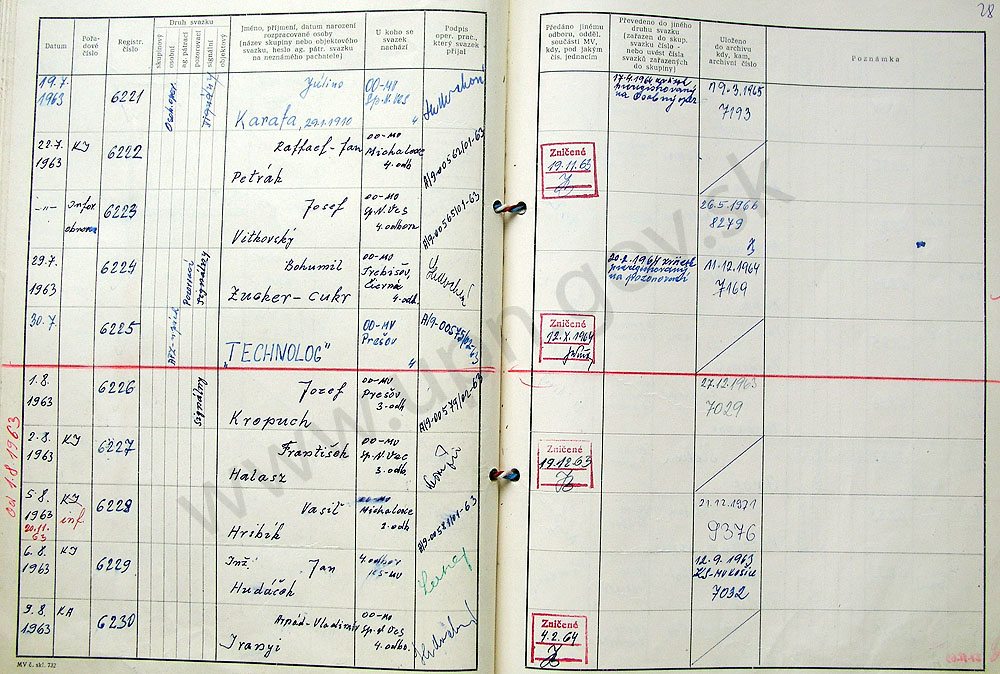 28
Datum
Pořa-
dové
číslo
Registr.
číslo
Druh svazku
skupinový
osobní
ag. pátrací
pozorovací
signální
objektový
Jméno, příjmení, datum narození
rozpracované osoby
(název skupiny nebo objektového
svazku, heslo ag. pátr. svazku
na neznámého pachatele)
U koho se
svazek
nachází
Podpis
oper. prac.,
který svazek
přijal
Předáno jinému
odboru, odděl.,
součásti MV,
kdy, pod jakým
čís. jednacím
Převedeno do jiného
druhu svazku
(zařazen do skup.
svazku číslo -
nebo uvést čísla
svazků zařazených
do skupiny)
Uloženo
do archivu
kdy, kam,
archivní číslo
Poznámka
19.7.
1963
6221
signálny
Júlino
Karafa, 29.1.1910
OO-MV
Sp.N.Ves
4
17.4.1964
19.3.1965
7193
22.7.
1963
KJ
6222
Raffael-Jan
Petrák
OO-MV
Michalovce
4.odb
A/9-00562/01-63
Zničené
19.11.63
-„-
Infor
6223
Josef
Vitkovský
OO-MV
Sp.N.Ves
4.odboru
A/9-00565/01-63
26.5.1966
8279
29.7.
1963
6224
Signálny
Bohumil
Zucker-cukr
OO-MV
Trebišov,
Čierna
4.odb.
11.12.1964
7169
30.7
6225
„TECHNOLOG"
OO-MV
Prešov
4
Zničené
12.X.1964
1.8.
1963
6226
Signálny
Jozef
Kropuch
OO-MV
Prešov
3.odb
A/9-00579/02-63
27.12.1963
7029
Od 1.8 1963
2.8.
1963
KJ
6227
František
Halasz
OO-MV
Sp.N.Ves
3.odb.
Zničené
19.12.63
5.8.
1963
20.11.
63
KJ
inf
6228
Vasil
Hribik
OO-MV
Michalovce
2.odb
A/9-00581/01-63
21.12.1971
9376
6.8.
1963
KJ
6229
Inž. Jan
Hudáček
4.odbor
KS-MV
12.9.1963
KS-MV Košice
7032
9.8.
1963
KA
6230
Arpád-Vladimir
Iranyi
OO-MV
Sp.N.Ves
4.odbo.
Zničené
4.2.64
MV č. skl. 732
www.upn.gov.sk